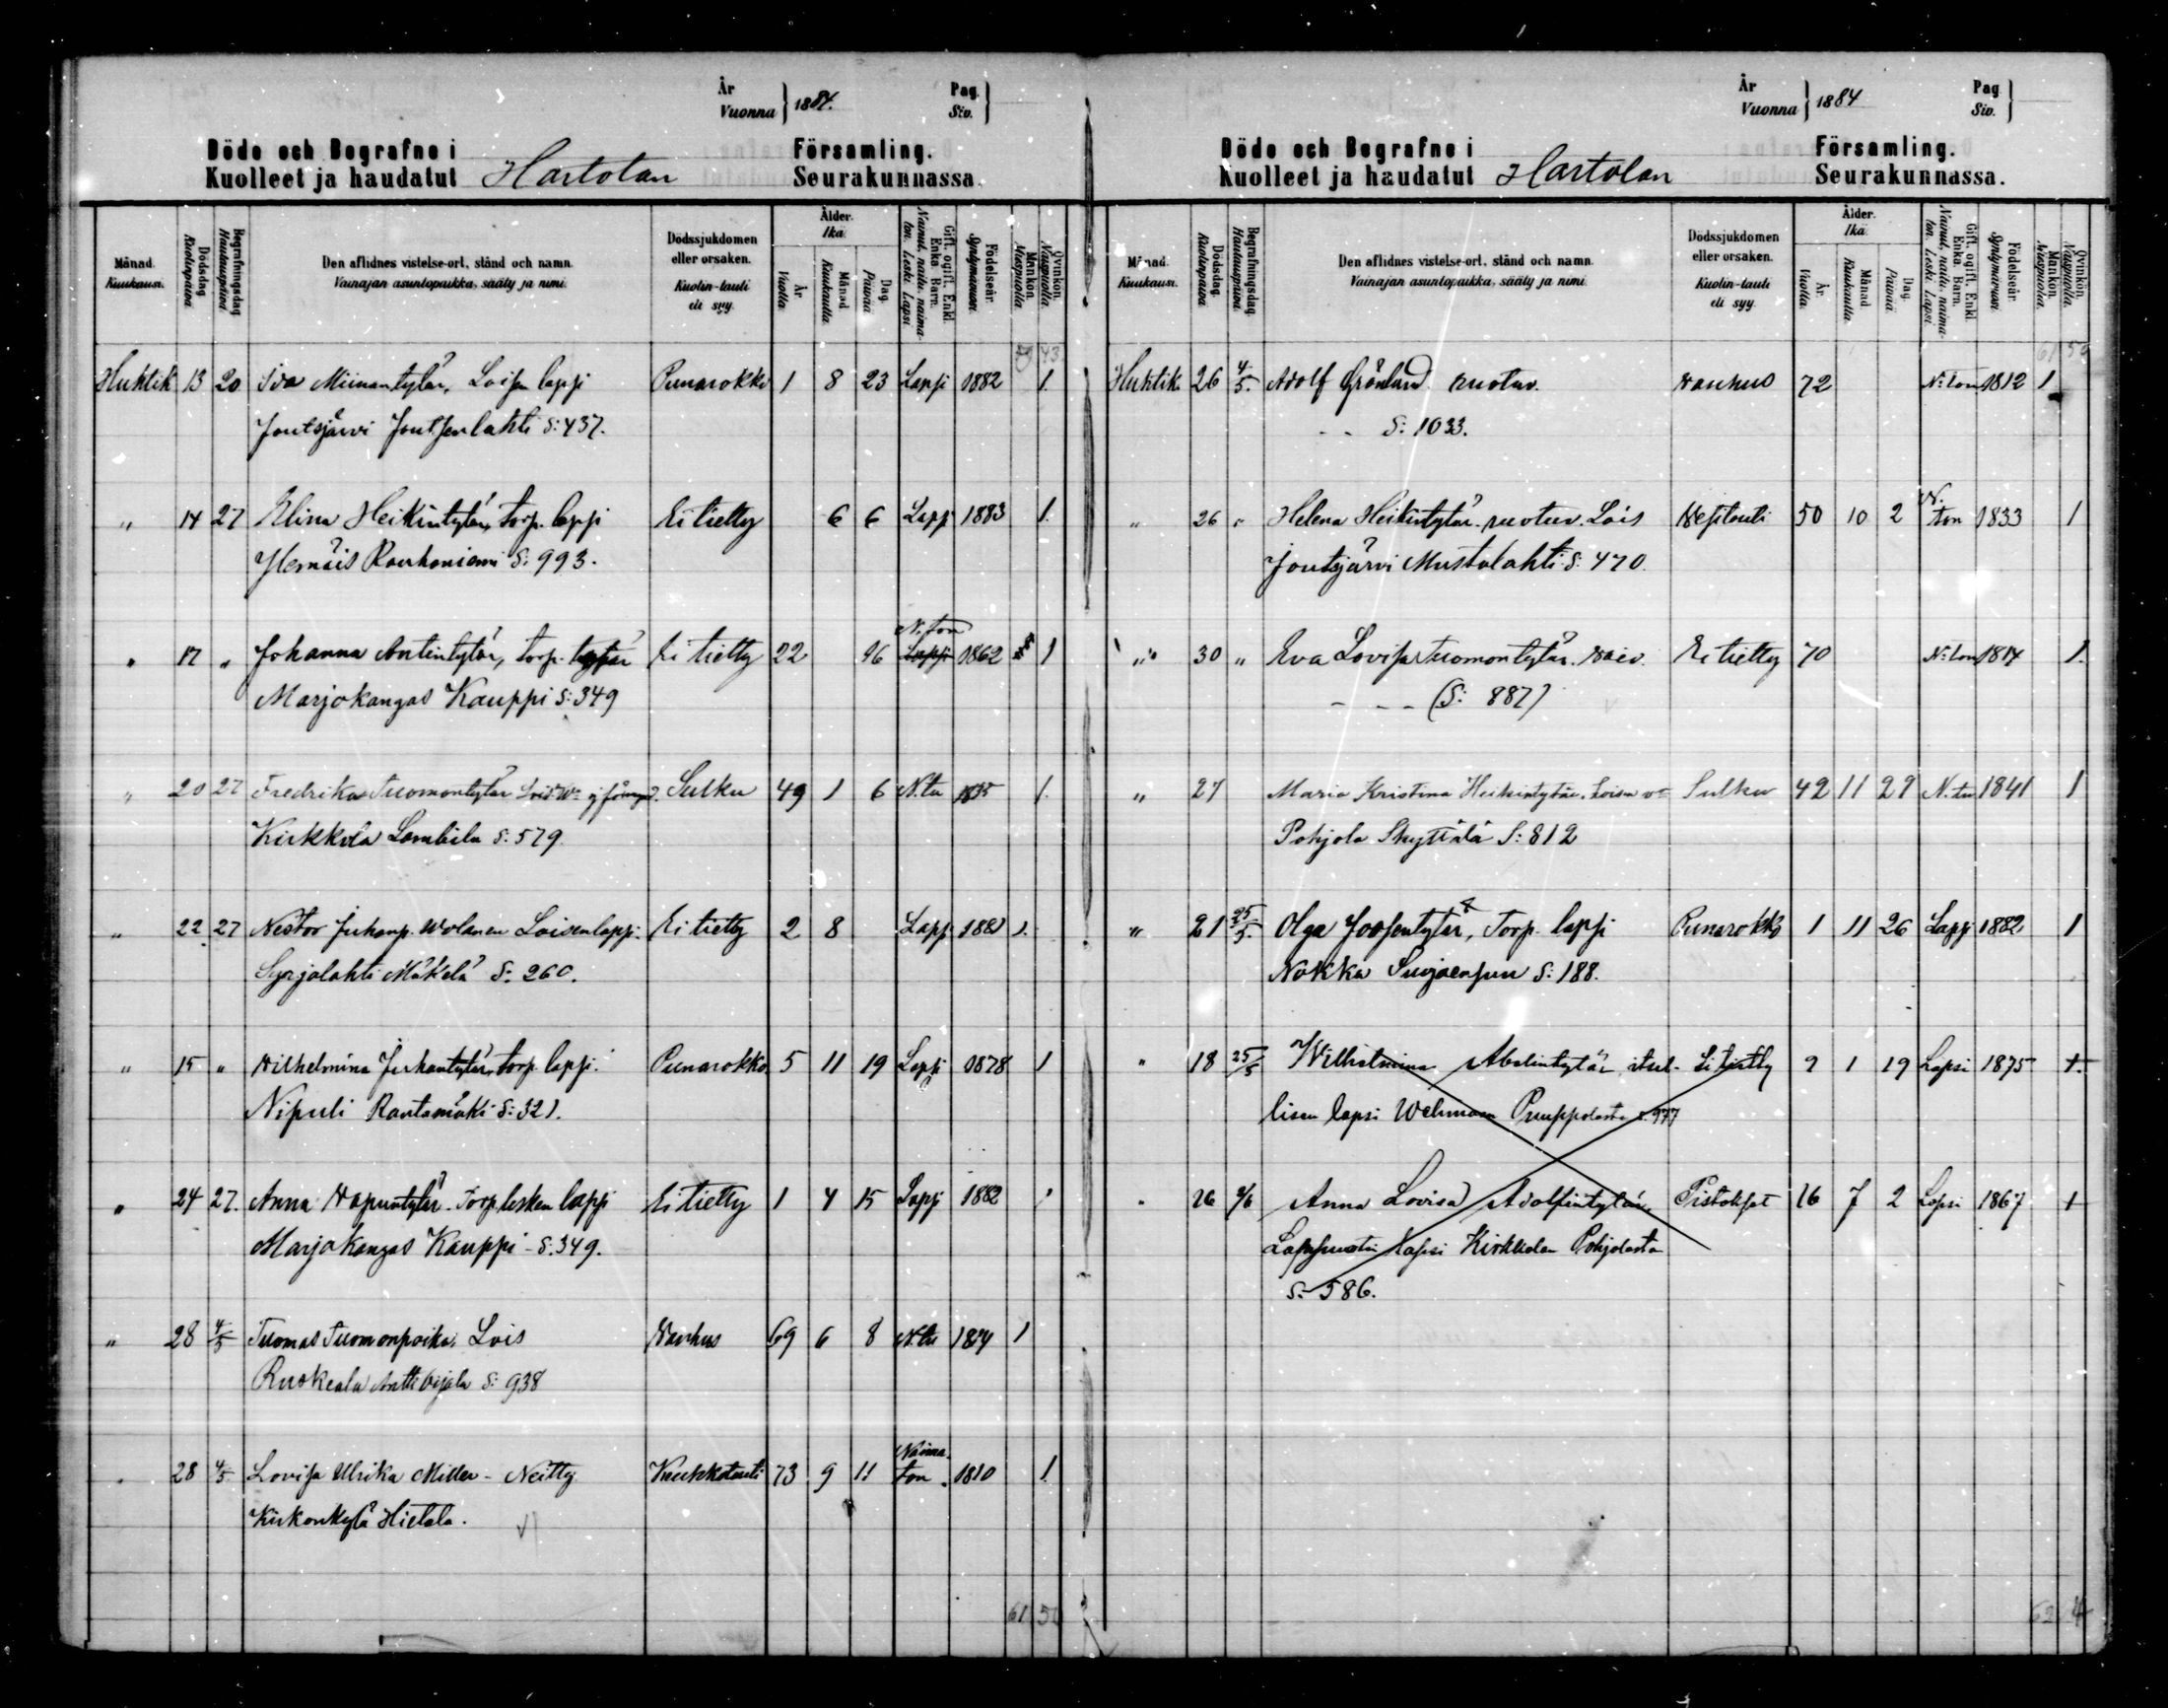 År
Vuonna } 1884.
Pag.
Siv. }
Döde och Begrafne i
Kuolleet ja haudatut Hartolan
Församling.
Seurakunnassa.
Månad. Kuukausi.
Dödsdag. Kuolinpäivä
Begrafningsdag. Hautauspäivä
Den aflidnes vistelse-ort, stånd och namn.
Vainajan asuntopaikka, sääty ja nimi.
Dödssjukdomen eller orsaken.
Kuolin-tauti eli syy.
Ålder. Ikä.
År. Vuotta
Månad. Kuukautta
Dag. Päivää
Gift, ogift, Enkl. Enka. Barn.
Nainut, naitu, naima-ton. Leski. Lapsi.
Födelseår. Syntymävuosi.
Mankön. Miespuolia.
Qvinkön. Vaispuolia.
43
Huhtik 13 20 Iva Miinantytär, Loisen lapsi Punarokko 1 8 23 Lapsi 1882 1.
Joutsjärvi Joutsenlahti S: 437.
" 14 27 Elina Heikintytär, torp. lapsi Ei tietty 6 6 Laps 1883 1.
Hernäis Rauhaniemi S: 993.
N. ton
" 17 " Johanna Antintytär, torp. tytär Ei tietty 22 16 Lapsi 1862 1
Marjokangas Kauppi S: 349
" 20 27 Fredrika Tuomontytär Lois Sulku 49 1 6 N.tu 1.
Kirkkola Lambila S: 579.
" 22 27 Nestor Juhanp. Wolanen Loisenlapsi. Ei tietty 2 8 Laps 1882 1.
Syrjälahti Mäkelä S: 260.
" 15 " Wilhelmina Juhantytär, torp. lapsi. Punarokko 5 11 19 Lapsi 1878 1
Nipuli Rantamäki S: 321.
" 24 27. Anna Vapuntytär. Torp. lesken lapsi Ei tietty 1 4 15 Lapsi 1882 1
Marjokangas Kauppi - S. 349.
" 28 4/5 Tuomas Tuomonpoika, Lois Vanhus 69 6 8 N.tu 1814 1
Ruskeala Anttibijala S: 938
Naima
" 28 4/5 Lovisa Ulrika Miller - Neitty Keuhkotauti 73 9 11 ton. 1810 1.
Kirkonkylä Hietala.
61 50
År
Vuonna } 1884
Pag
Siv. }
Döde och Begrafne i
Kuolleet ja haudatut Hartolan
Församling.
Seurakunnassa.
Månad. Kuukausi.
Dödsdag. Kuolinpäivä.
Begrafningsdag. Hautauspäivä.
Den aflidnes vistelse-ort, stånd och namn.
Vainajan asuntopaikka, sääty ja nimi.
Dödssjukdomen eller orsaken.
Kuolin-tauti eli syy.
Ålder. Ikä.
År. Vuotta.
Månad. Kuukautta.
Dag. Päivää
Gift, ogift, Enkl. Enka. Barn.
Nainut, naitu, naima-ton. Leski. Lapsi.
Födelseår. Syntymävuosi.
Mankön. Miespuolia.
Qvinkön. Vaispuolia.
61 50
Huhtik. 26 4/5. Adolf Grönlund ruotuv. vanhus 72 N:ton 1812 1
- - S: 1033.
" 26 " Helena Heikintytär. ruotuv. Lois Vesitauti 50 10 2 N. ton 1833 1
Joutsjärvi Mustalahti S: 470.
" 30 " Eva Lovisa Tuomontytär. vaiv. Ei tietty 70 N:ton 1814 1.
- - - (S: 887)
" 27 Maria Kristina Heikintytär. Loisen Sulku 42 11 27 N.tu 1841 1
Pohjola Skyttälä S: 812
" 21 25/5. Olga Joosentytär, Torp. lapsi Punarokko 1 11 26 Lapsi 1882 1
Nokka S: 188.
" 18 25/5 Wilhelmina Abelintytär itsel- Ei tietty 9 1 19 Lapsi 1875 1.
lisen lapsi Wehmaan Pruuppolasta s. 977
" 26 Anna Lovisa Adolfintytär Pistokset 16 7 2 Lapsi 1867 1
lapsi Kirkkolan Pohjolasta
S.- 586.
62 4